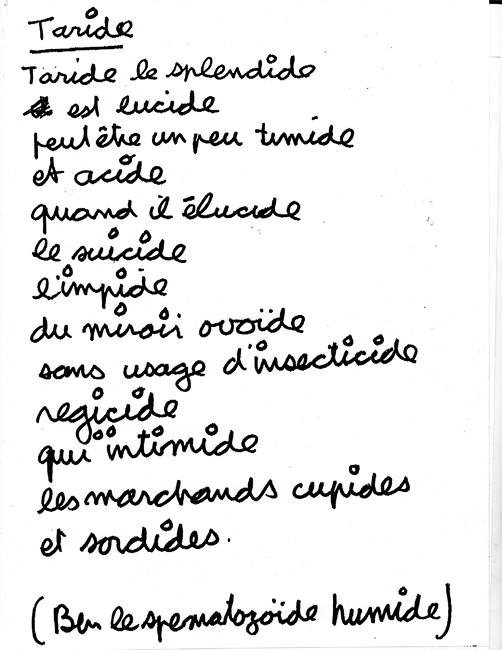 Taride
Taride le splendide
est lucide
peut être un peu timide
et acide
quand il élucide
le suicide
limpide
du miroir ovoïde
sans usage d'insecticide
regicide
qui intimide
les marchands cupides
et sordides.
(Ben le spematozoïde humide)